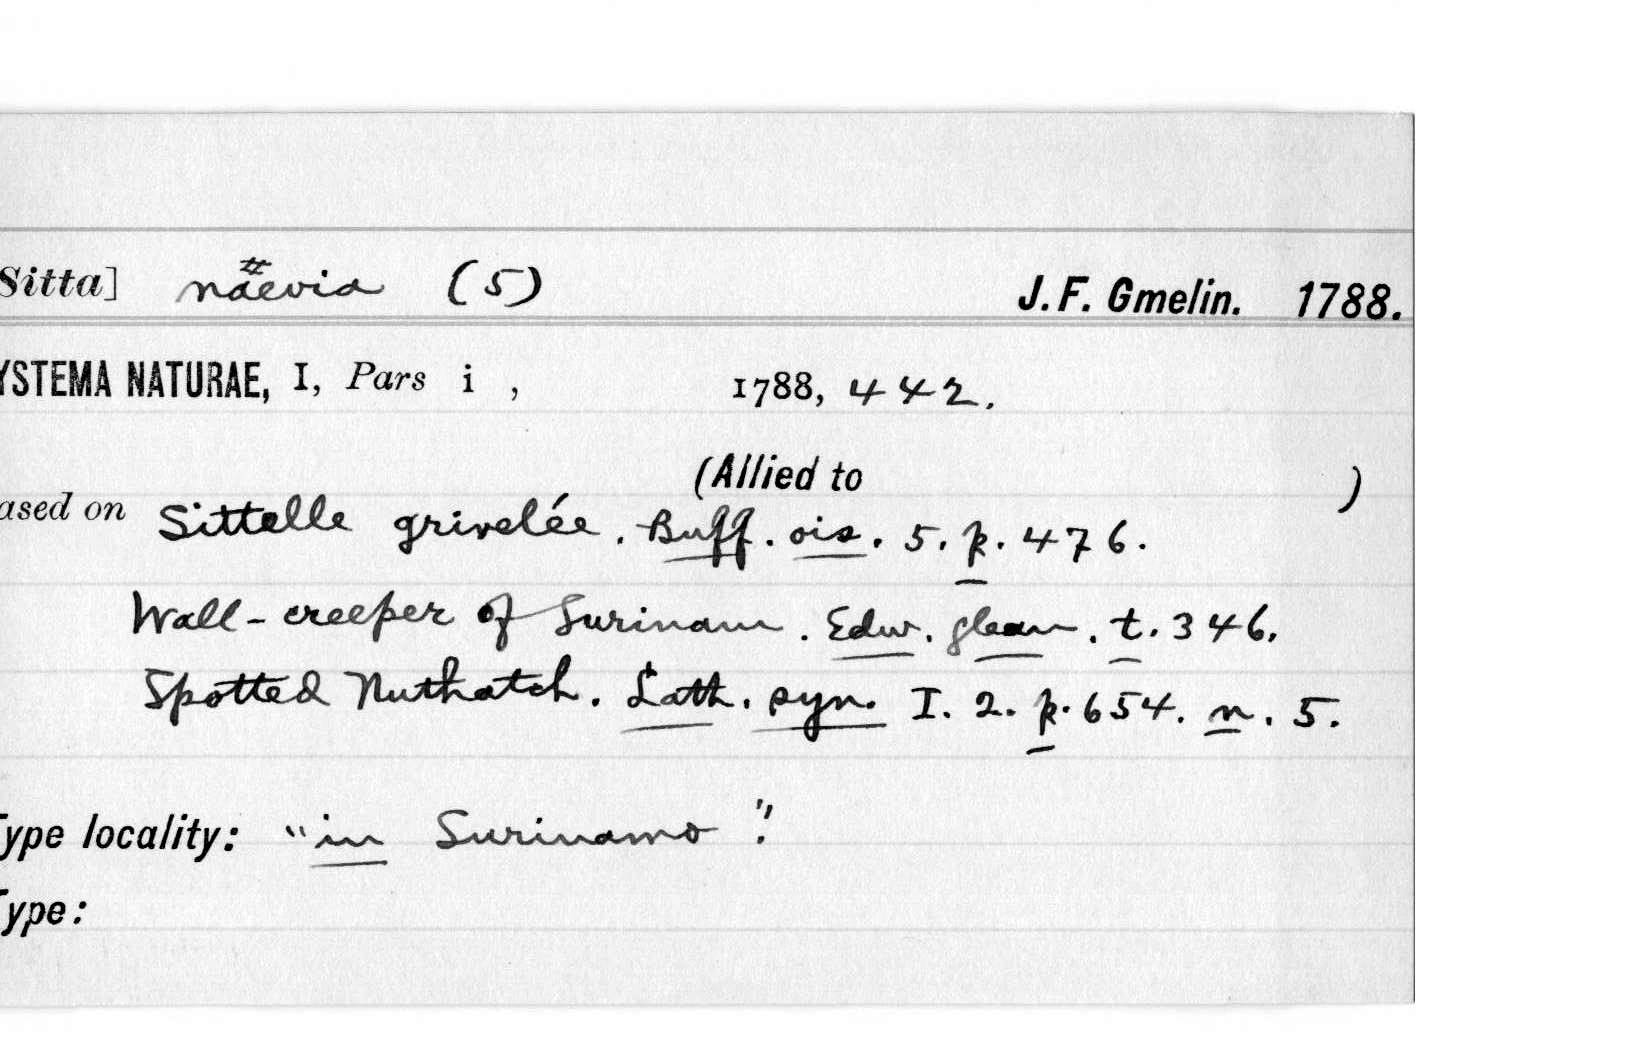 Sitta] naevia (5) J. F. Gmelin. 1788.
YSTEMA NATURAE, I, Pars i , 1788, 442.
(Allied to )
ased on Sittelle grivelée. Buff. ois. 5. p. 476.
Wall-creeper of Surinam. Edw. glean. t. 346.
Spotted Nuthatch. Lath. syn. I. 2. p. 654. n. 5.
Type locality: "in Surinamo".
Type: